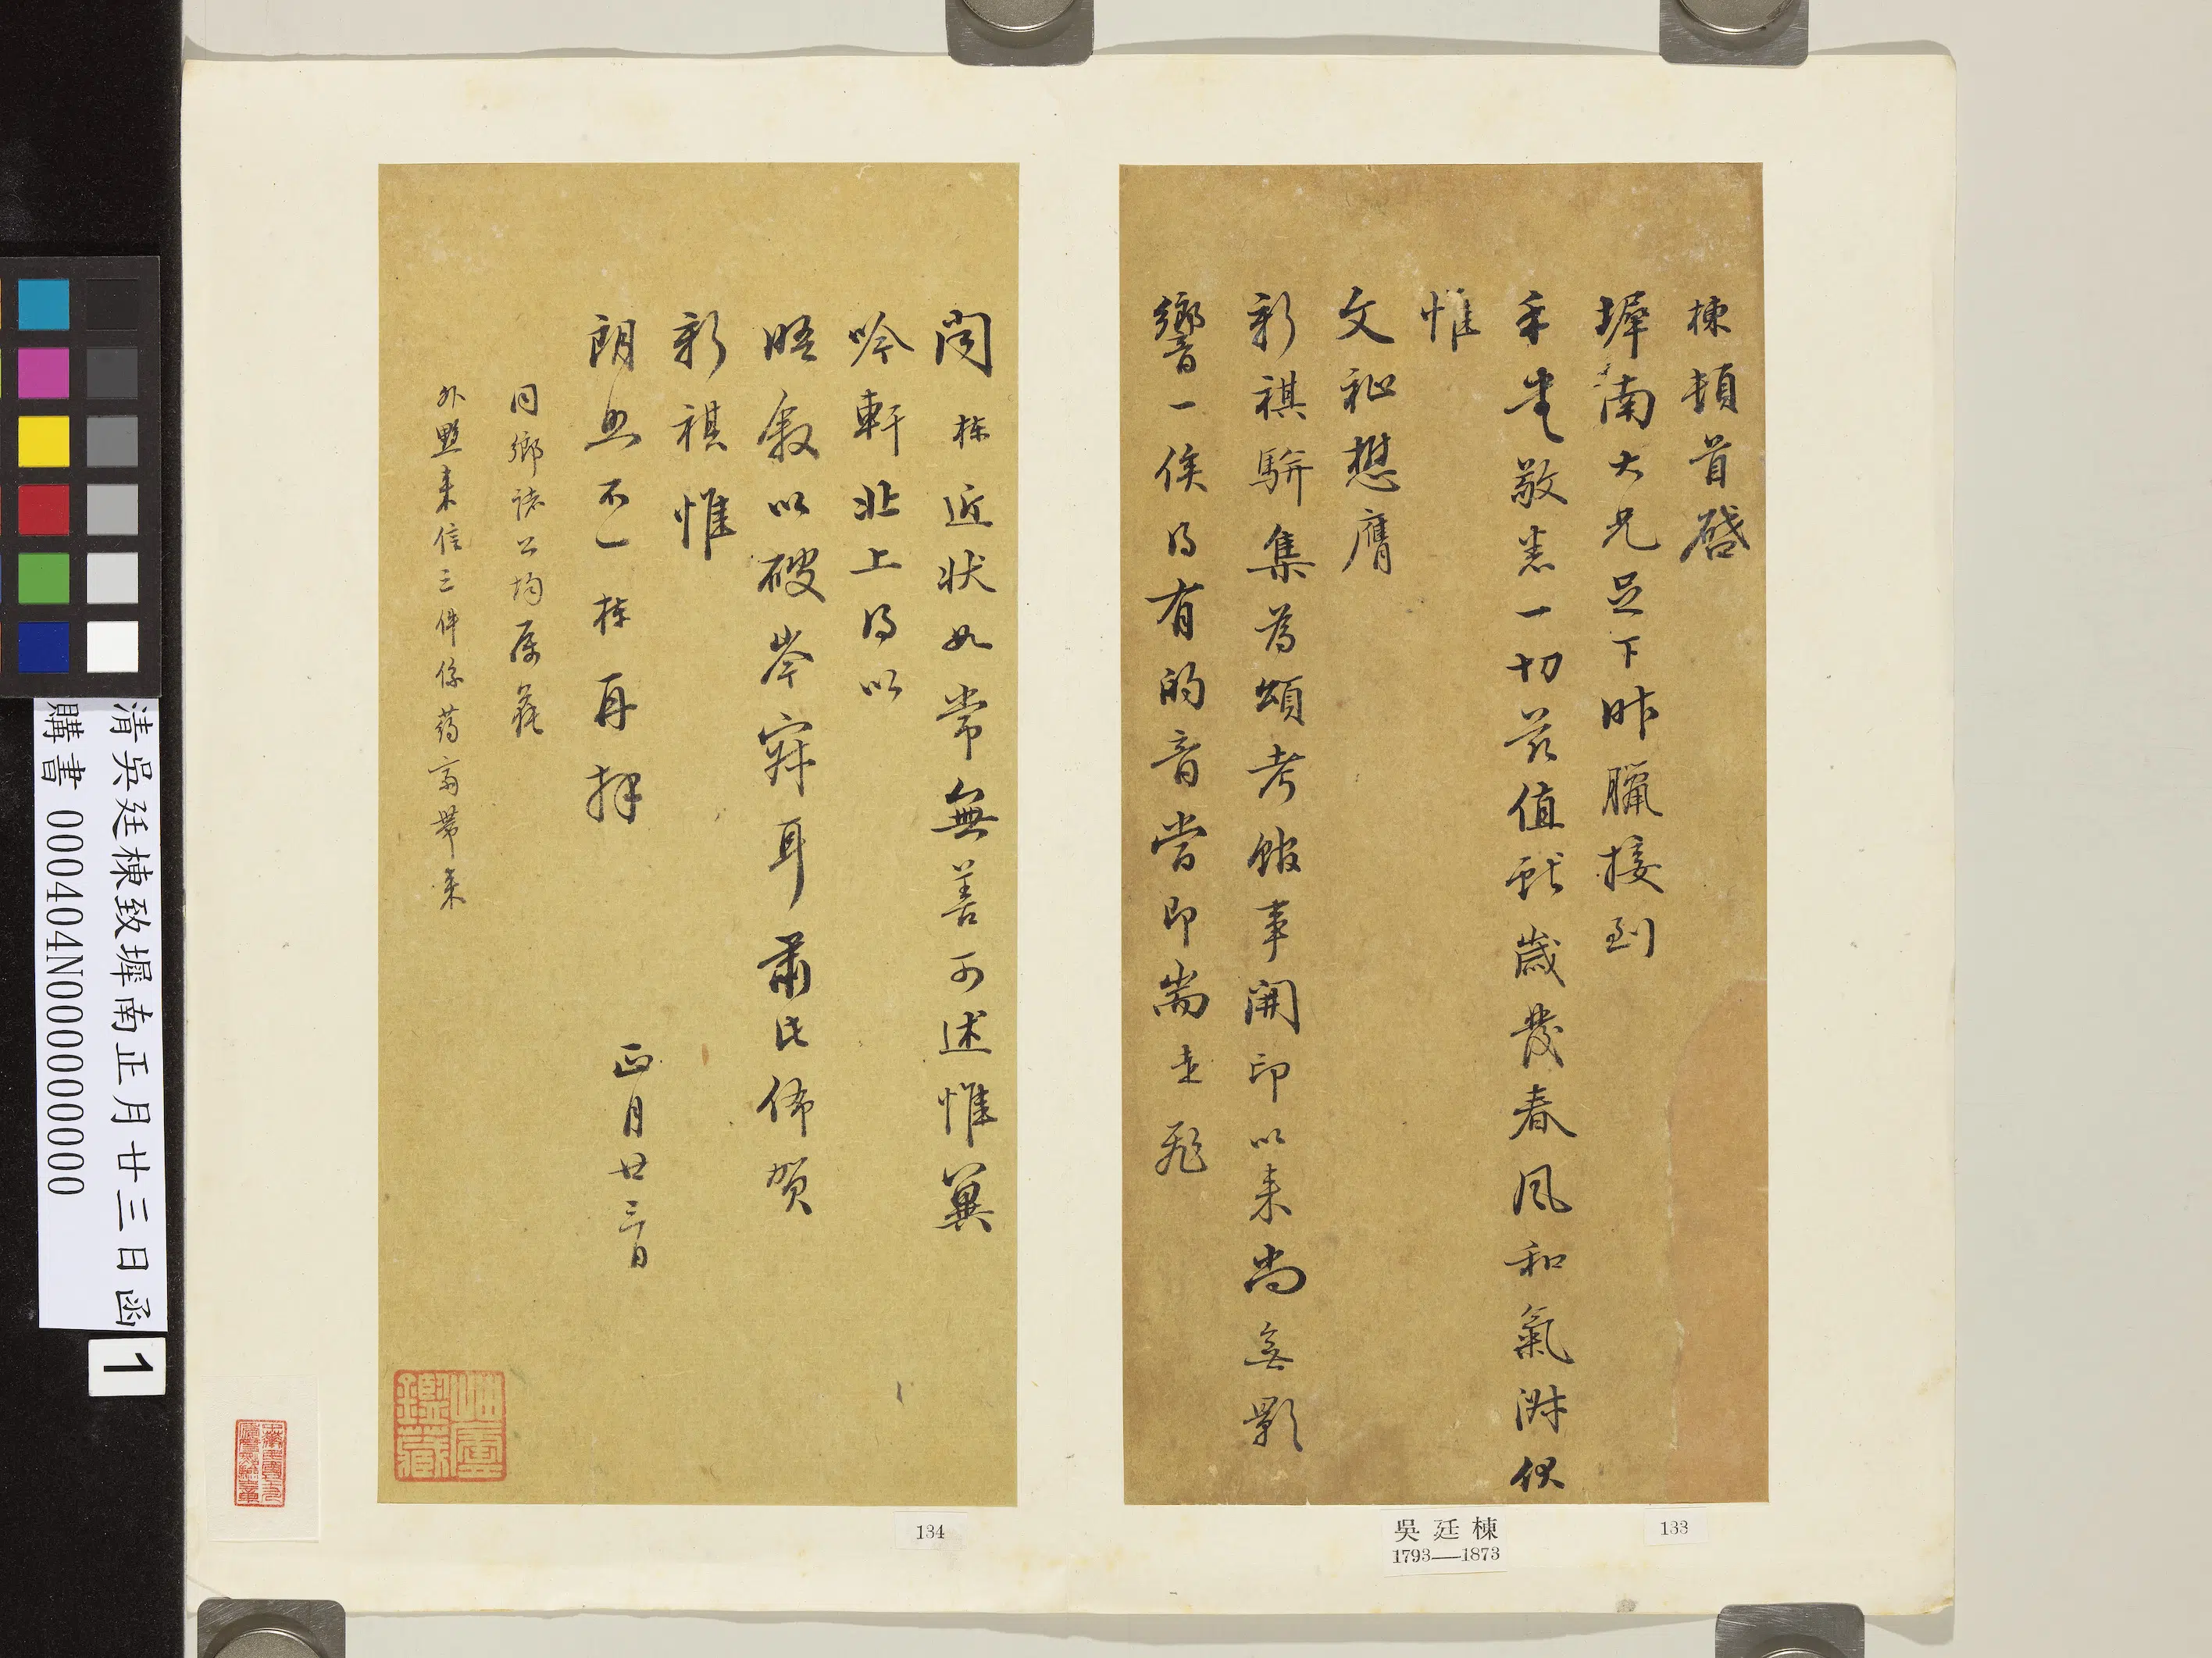 棟頓首啓
墀南大兄足下昨臘接到
手書敬悉一切茲值獻歲發春風和氣淋伏
惟
文祉懋膺
新祺駢集為頌考館事開印以來尚無影
響一俟得有的音當即耑走飛
聞棟近狀如常無善可述惟冀
吟軒北上得以
晤敘以破岑寂耳肅此佈賀
新祺惟
朗照不一棟再拜
正月廿三日
同鄉諸公均為
外來信三件係帶來
岫廬鑑藏
吳廷棟
1793—1873
133
134
清吳廷棟致墀南正月廿三日函
購書 000404N000000000
1